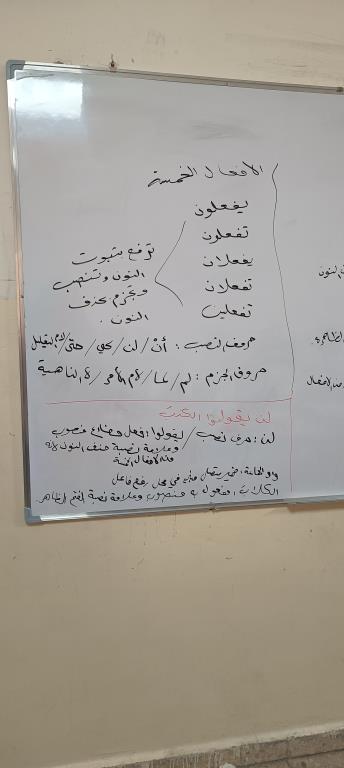 الأفعال الخمسة
يفعلون
تفعلون
يفعلان
تفعلان
تفعلين
ترفع بثبوت
النون وتنصب
وتجزم بحذف
النون.
حروف النصب: أنْ/لن/كي/حتى/لام التعليل
حروف الجزم: لم/لما/لام الأمر/لا الناهية
لن يقولوا الكذب
لن: حرف نصب/يقولوا: فعل مضارع منصوب
وعلامة نصبه حذف النون لأنه
من الأفعال الخمسة
واو الجماعة: ضمير متصل مبني في محل رفع فاعل
الكذب: مفعول به منصوب وعلامة نصبه الفتح الظاهر.
النون
الظاهرة
من الأفعال